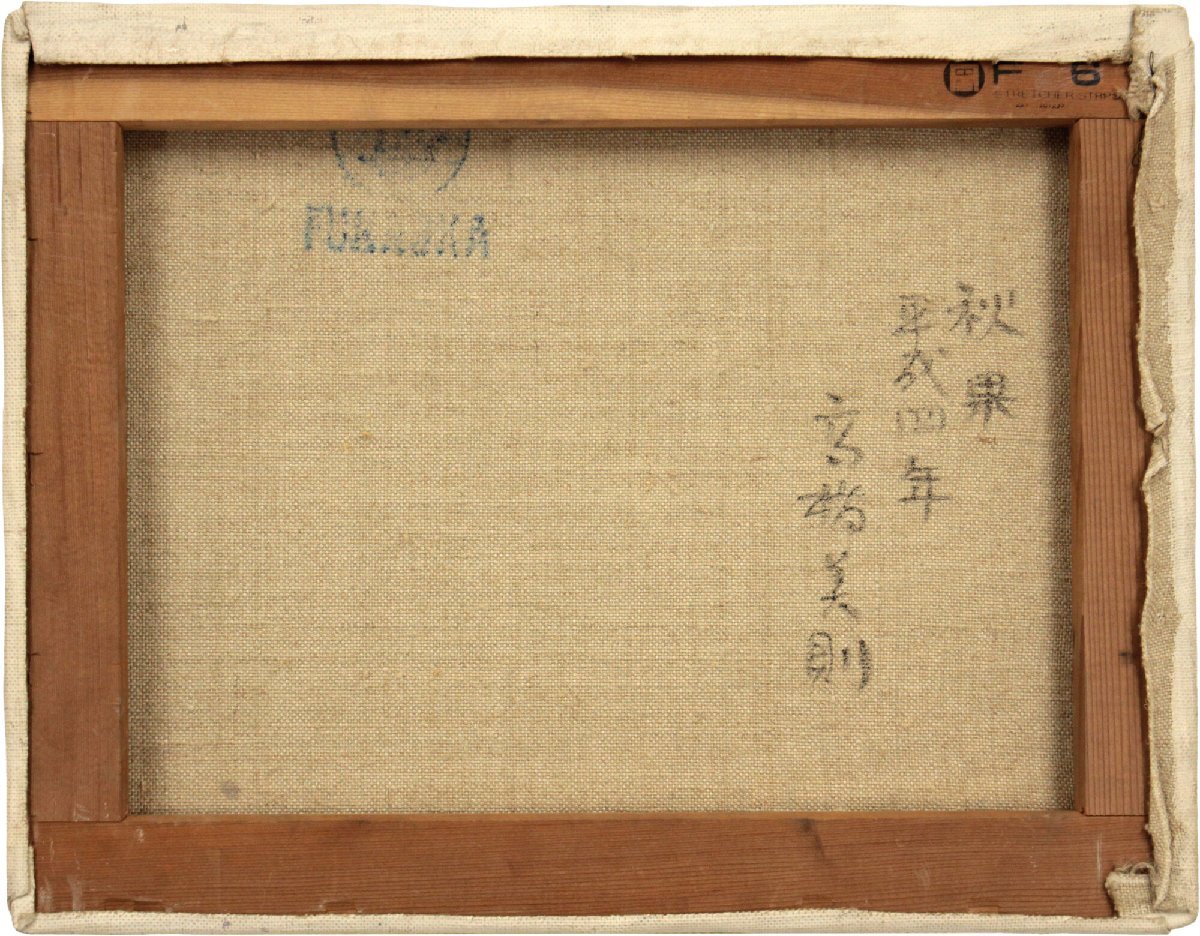 F 6
STRETCHER STRIPS
FUKAOKA
秋果
平成四年
高橋美則